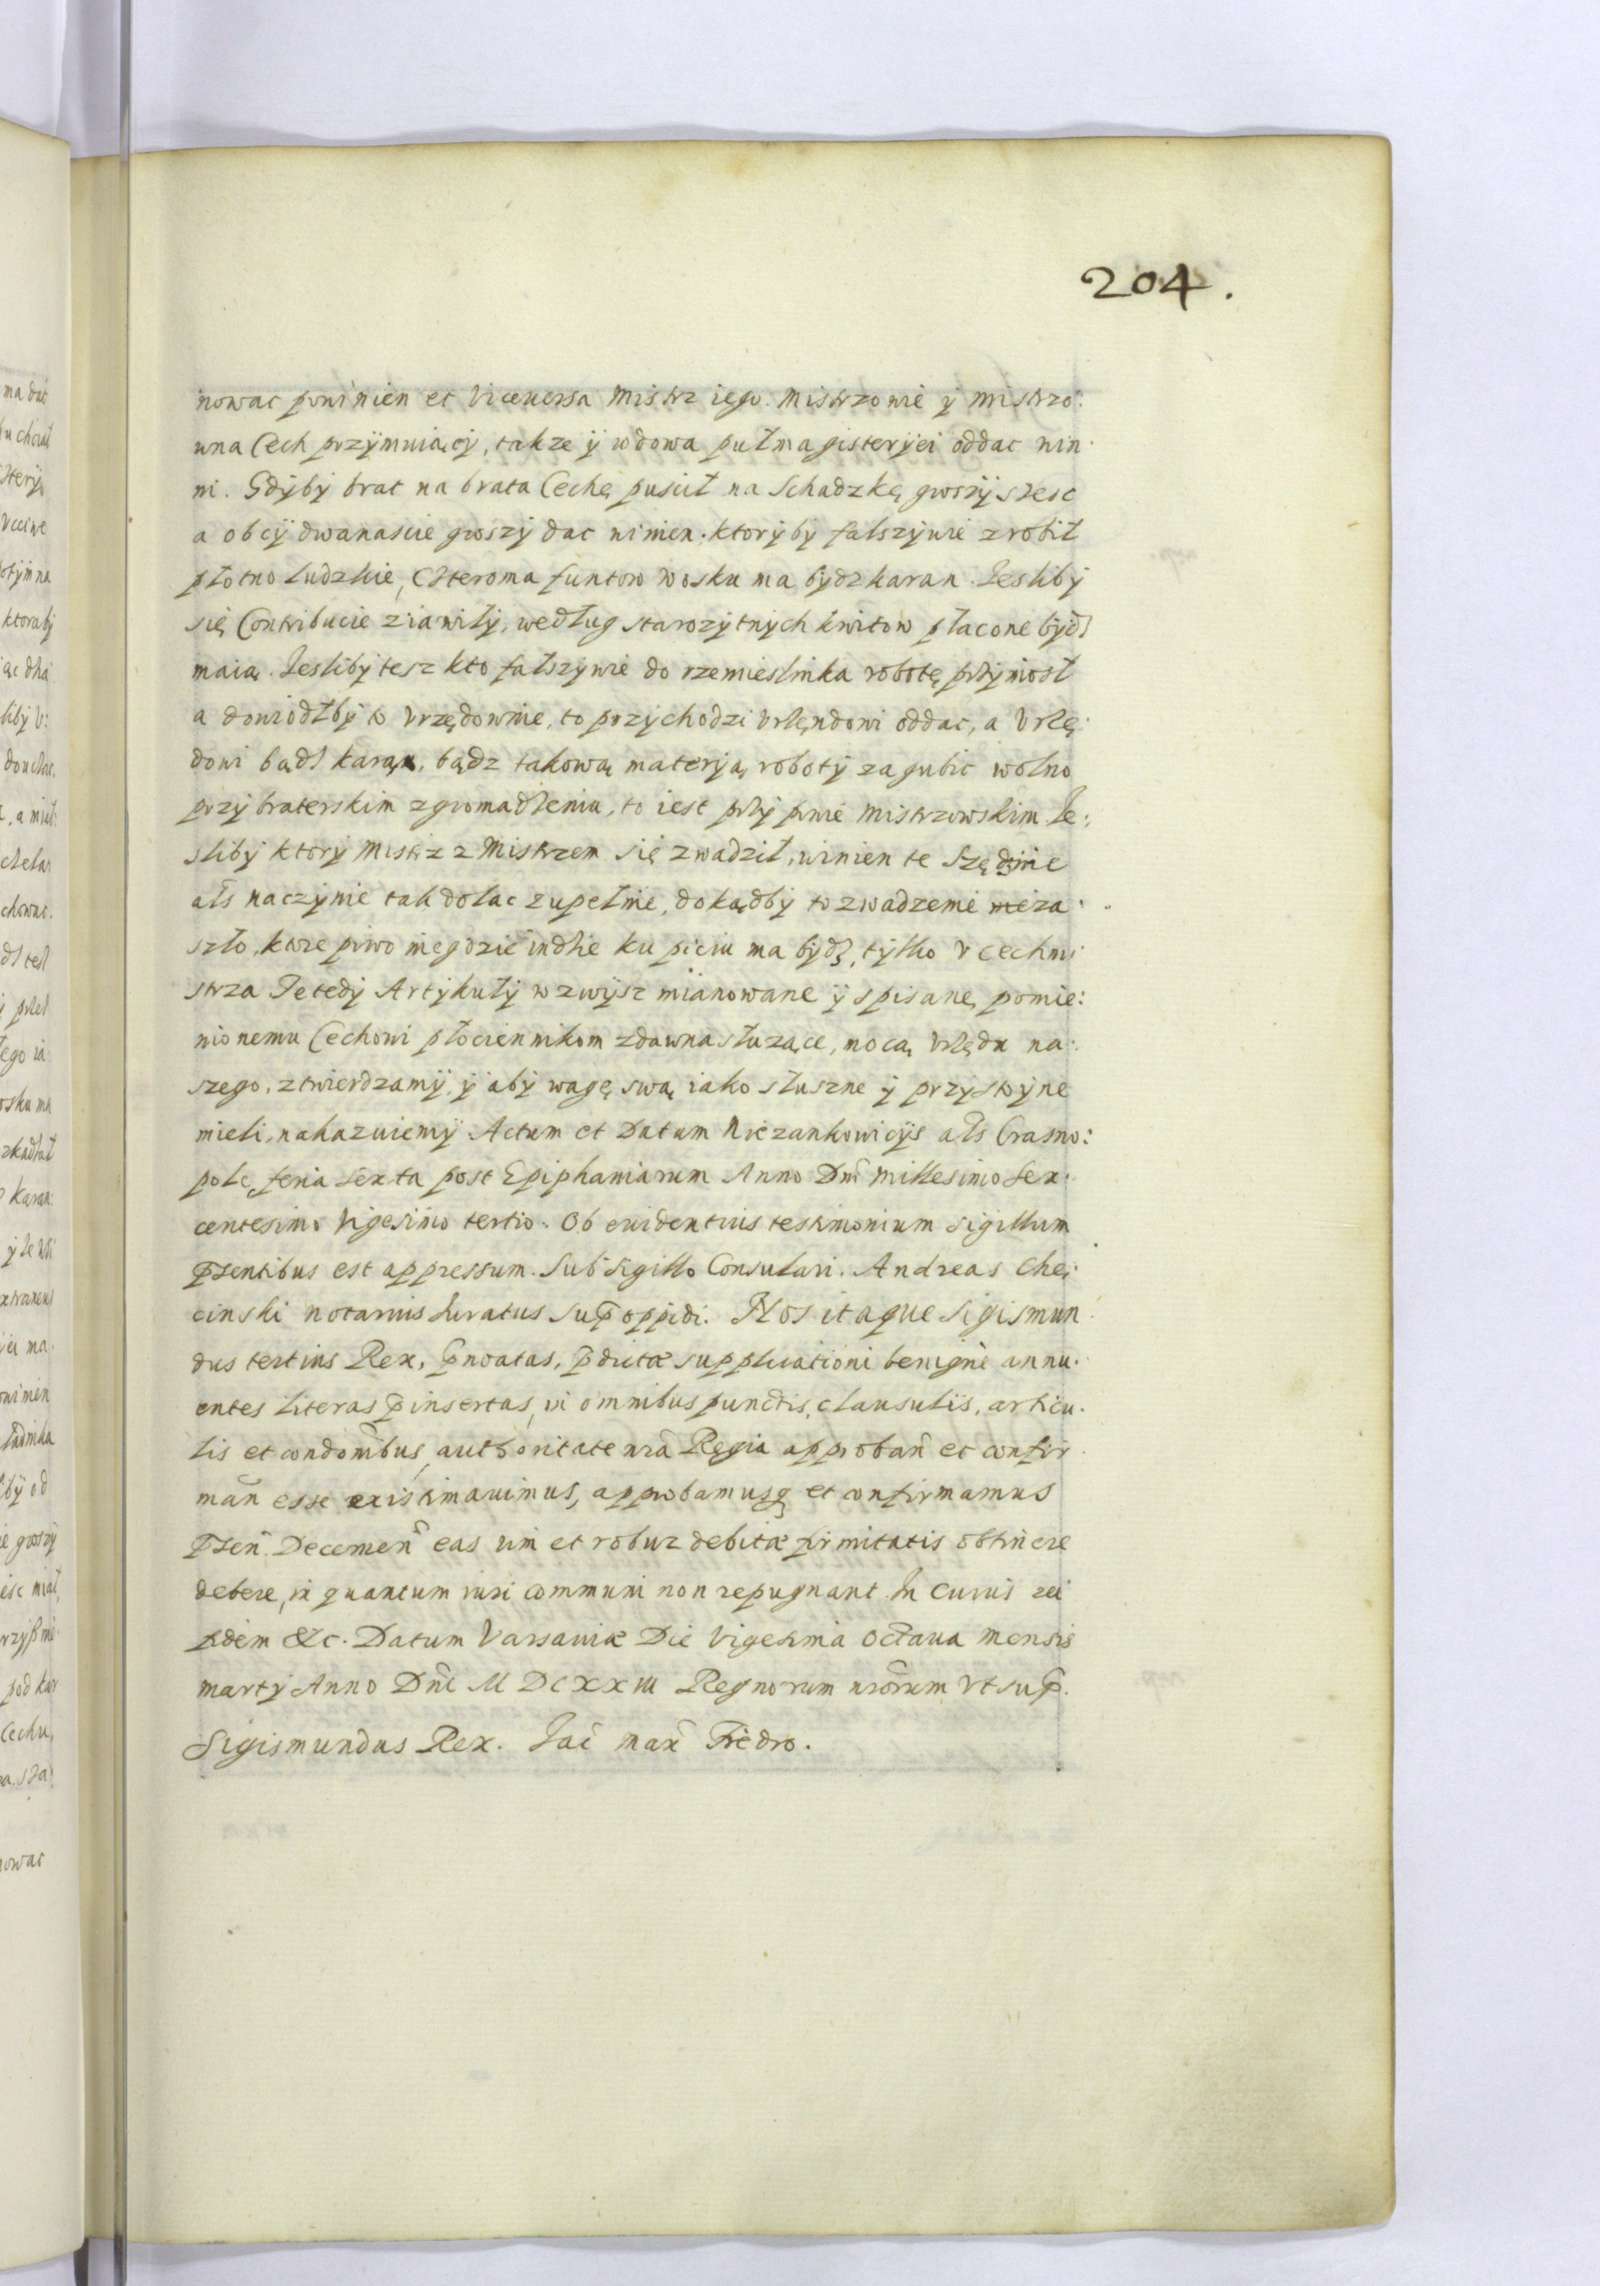 204.
nowac powinien et viceuersa Mistrz iego. Mistrzowie y Mistrzo:
wna Cech przymuiący, takze y wdowa pułmagisteryei oddac win
ni. Gdyby brat na brata Cechę puscił na Schadzkę groszy szesc
a obcy dwanascie groszy dac winien. ktoryby fałszywie zrobił
płotno ludzkie, czteroma funtow wosku ma bydz karan. Iesliby
się Contribucie ziawiły, według starozytnych kwitow płacone bydź
maią. Iesliby tesz kto fałszywie do rzemieslnika robotę przyniosł
a dowiodłby to vrzędownie, to przychodzi vrzędowi oddac, a vrzę:
dowi bądz karąn, bądz takową materyą roboty zagubic wolno
przy braterskim zgromadzeniu, to iest przy piwie Mistrzowskim Ie:
sliby ktory Mistrz z Mistrzem się zwadził, winien te
als naczynie tak dolac zupełnie, dokądby to zwadzenie za
szło, ktore piwo niegdzie indzie ku piciu ma bydź, tylko v cechmi
strza Te tedy Artykuły wzwysz mianowane y spisane, pomie:
nionemu Cechowi płociennikom zdawna słuzące, mocą vrzędu na:
szego, ztwierdzamy, y aby wagę swą iako słuszne y przystoyne
mieli, nakazuiemy. Actum et Datum Niezankowicijs als Crasno:
pole, feria sexta post Epiphaniarum Anno Dni Millesimo Sex
centesimo Vigesimo tertio. Ob euidentius testimonium sigillum
pńtibus est appressum. Sub Sigillo Consulari. Andreas Chę:
cinski notarius Iuratus sup oppidi. Nos itaque Sigismun
dus tertius Rex, pnoatas, pdictæ supplicationi benignè annu
entes literas pinsertas, in omnibus punctis, clausulis, articu
lis et condonibus, authoritate nra Regia approban et confir
man esse existimauimus, approbamusq et confirmamus
psen. Decernen eas vim et robur debitæ firmitatis obtinere
debere, in quantum iuri communi non repugnant. In cuius rei
fidem &c. Datum Varsauiæ Die Vigesima Octaua Mensis
Marty Anno Dni M DCXXIII Regnorum nrorum vt sup.
Sigismundus Rex. Iac Max Fredro.